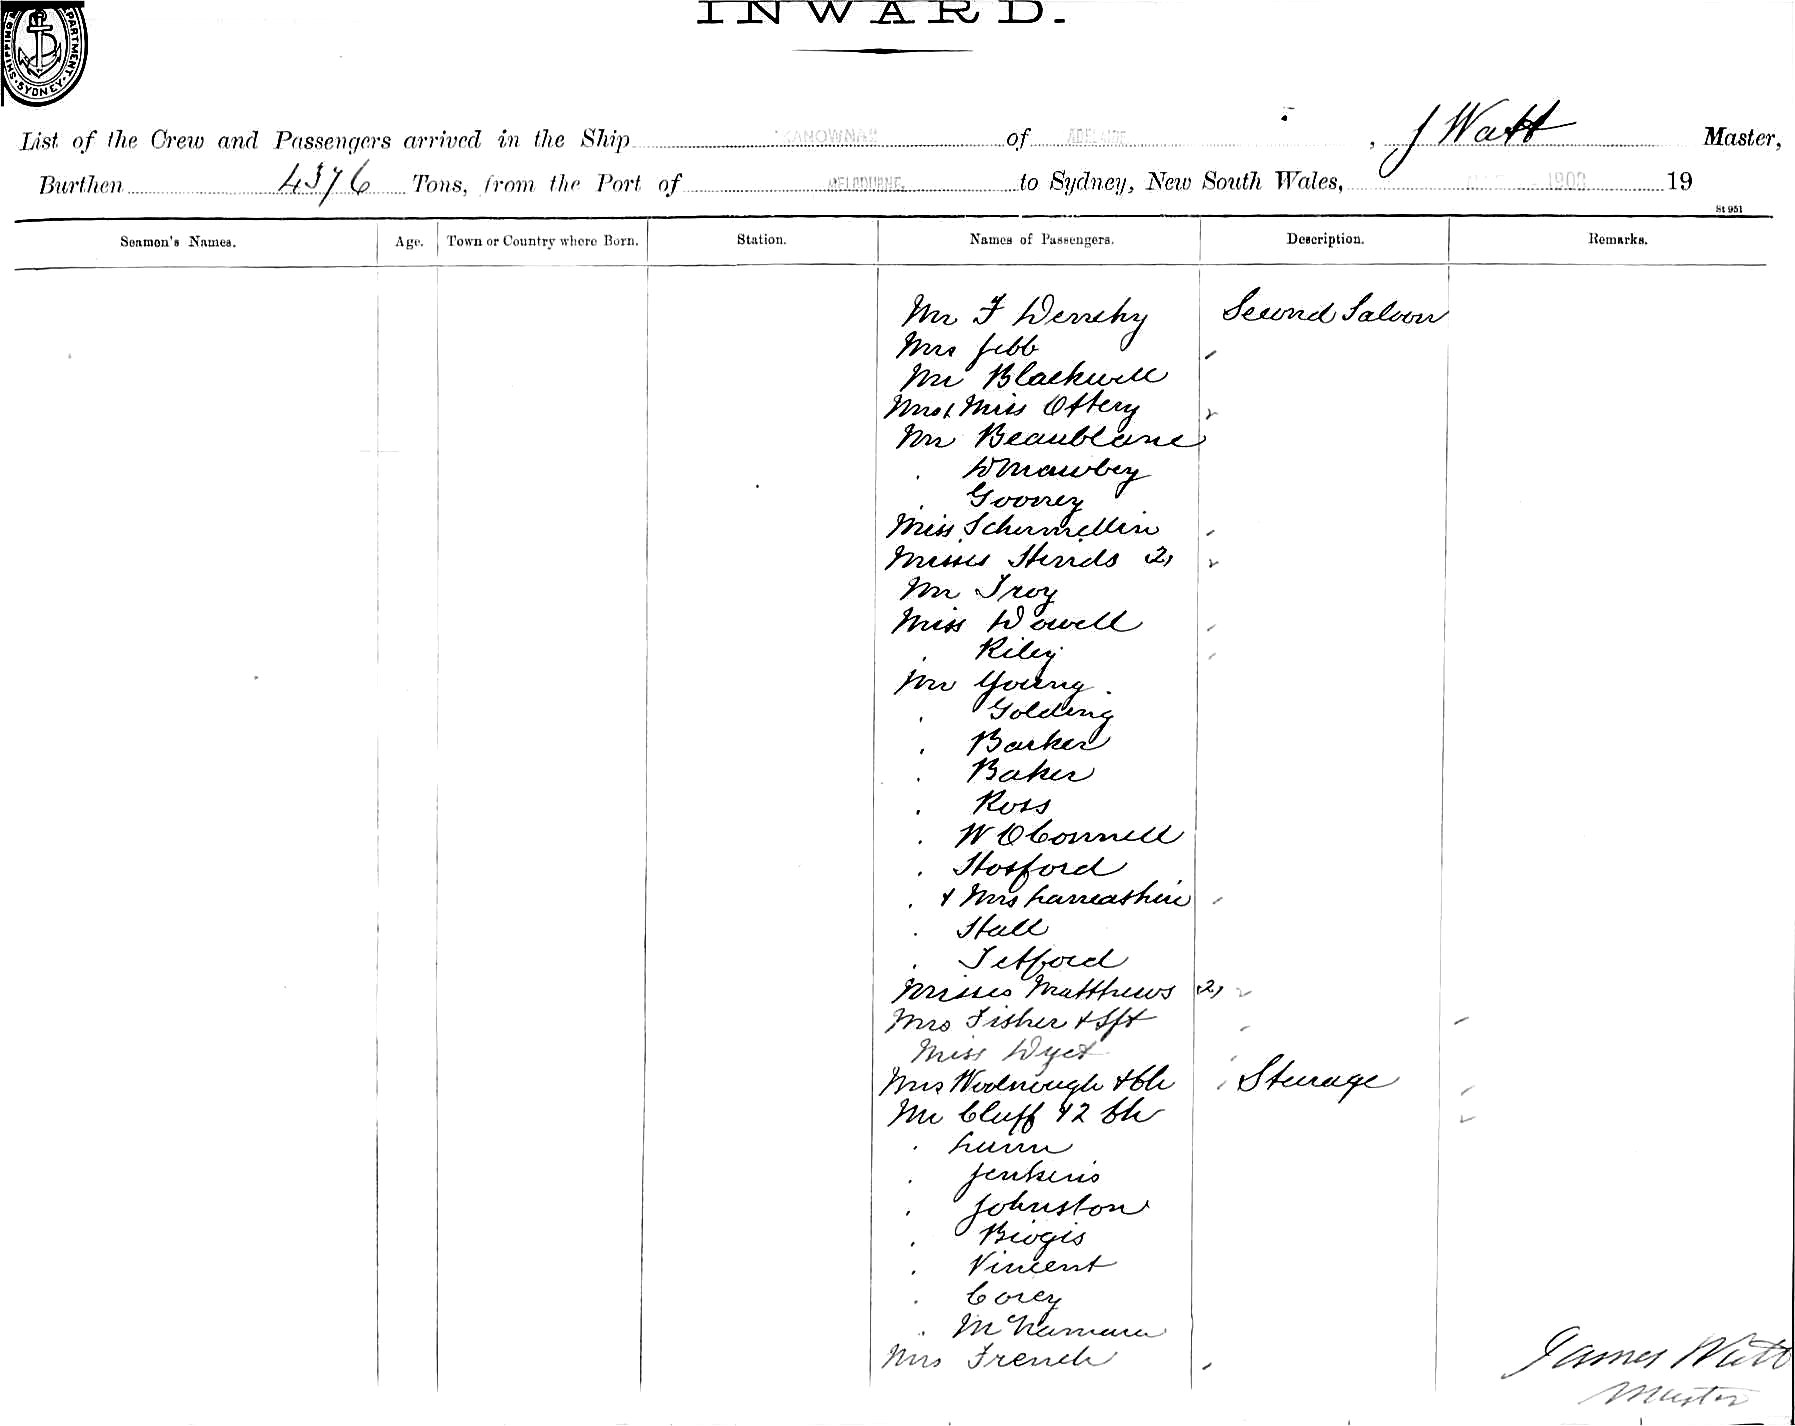 INWARD.
SHIPPING DEPARTMENT SYDNEY
List of the Crew and Passengers arrived in the Ship KANOWNA of ADELAIDE, J Watt Master,
Burthen 4376 Tons, from the Port of MELBOURNE. to Sydney, New South Wales, 1903 19
St 951
Seamen's Names. Age. Town or Country where Born. Station. Names of Passengers. Description. Remarks.
Mr F Second Saloon
Mrs Jebb
Mr Blackwell
Mrs & Miss Ottery
Mr Beaublane
. Mawbey
. Goovey
Miss
Misses Hinds 2
Mr Troy
Miss Dowell
. Riley
Mr Young
. Golding
. Barker
. Baker
. Ross
. W OConnell
. Hosford
. & Mrs Lancashire
. Hall
. Tetford
Misses Matthews 2
Mrs Fisher & Inft
Miss Dyet
Mrs Woolnough & Ch Steerage
Mr Cluff & 2 Ch
. Lunn
. Jenkins
. Johnston
. Biogis
. Vincent
. Corey
. McNamara
Mrs French
James Watt
Master